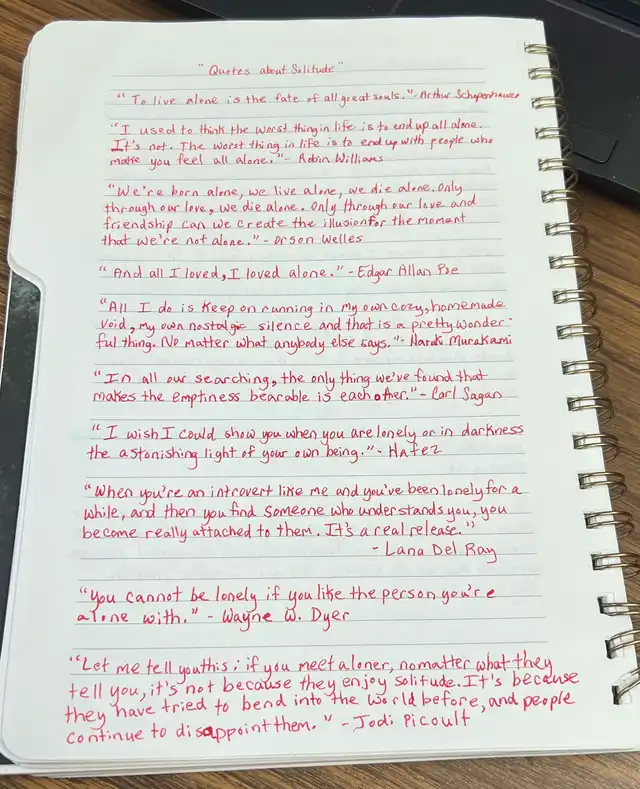 "Quotes about Solitude"
"To live alone is the fate of all great souls."-Arthur Schopenhauer
"I used to think the worst thing in life is to end up all alone.
It's not. The worst thing in life is to end up with people who
make you feel all alone."- Robin Williams
"We're born alone, we live alone, we die alone. Only
through our love, we die alone. Only through our love and
friendship can we create the illusion for the moment
that we're not alone." - Orson Welles
"And all I loved, I loved alone." - Edgar Allan Poe
"All I do is keep on running in my own cozy, homemade
void, my own nostalgic silence and that is a pretty wonder-
ful thing. No matter what anybody else says."- Haruki Murakami
"In all our searching, the only thing we've found that
makes the emptiness bearable is each other."- Carl Sagan
"I wish I could show you when you are lonely or in darkness
the astonishing light of your own being."- Hafez
"When you're an introvert like me and you've been lonely for a
while, and then you find someone who understands you, you
become really attached to them. It's a real release."
- Lana Del Ray
"You cannot be lonely if you like the person you're
alone with." - Wayne W. Dyer
"Let me tell you this: if you meet a loner, no matter what they
tell you, it's not because they enjoy solitude. It's because
they have tried to bend into the world before, and people
continue to disappoint them." - Jodi Picoult